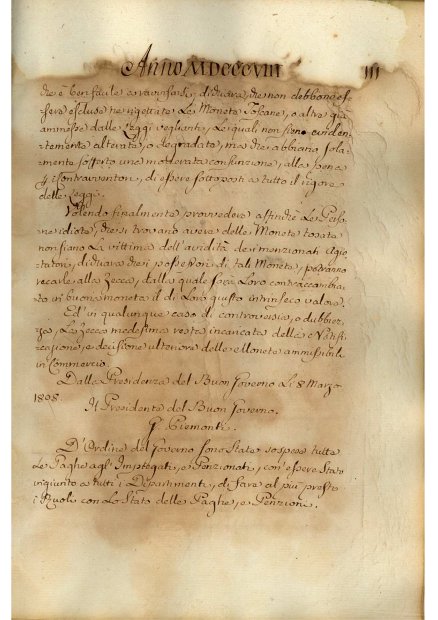 Anno MDCCCVIII III
che è Confacile a ravvisarsi, dichiara, che non debbono es-
sere escluse ne rigettate Le Monete Toscane, o altre già
ammesse dalle Leggi veglianti, Le quali non siano eviden-
temente alterate, o degradate, ma che abbiano sola-
mente sofferto una moderata consunzione, alla pena
de i contravventori, di essere sottoposti a tutto il rigore
delle Leggi.
Volendo finalmente provvedere affinchè Le Perso-
ne idiote, che si trovano avere delle Monete tosate
non siano La vittima dell'avidità dei menzionati Agio-
tatori, dichiara che i possessori di tali Monete, potranno
recarle alla Zecca, dalla quale sarà Loro contraccambia-
to in buona moneta il di Loro giusto intrinseco valore.
Ed in qualunque caso di controversia, e dubbiez-
za, La Zecca medesima resta incaricata della Verifi-
cazione, e decisione ulteriore delle Monete ammissibili
in Commercio.
Dalla Presidenza del Buon Governo Li 8 Marzo
1808.
Il Presidente del Buon Governo.
G. Piemonti.
D'Ordine del Governo sono State sospese tutte
Le Paghe agl'Impiegati, e Penzionati, con essere Stato
ingiunto a tutti i Dipartimenti, di fare al più presto
i Ruoli con Lo Stato delle Paghe, e Penzioni.